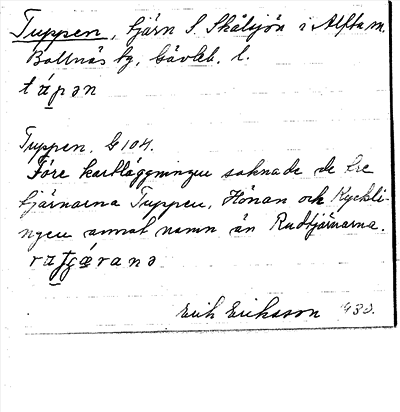 Tuppen, tjärn S. Skålsjön i Alfta sn.
Bollnäs tg, Gävleb. l.
tápən
Tuppen. G 104.
Före kartläggningen saknade de tre
tjärnarna Tuppen, Hönan och Kyckli-
ngen annat namn än Rudtjärnarna.
Erik Eriksson 1930.